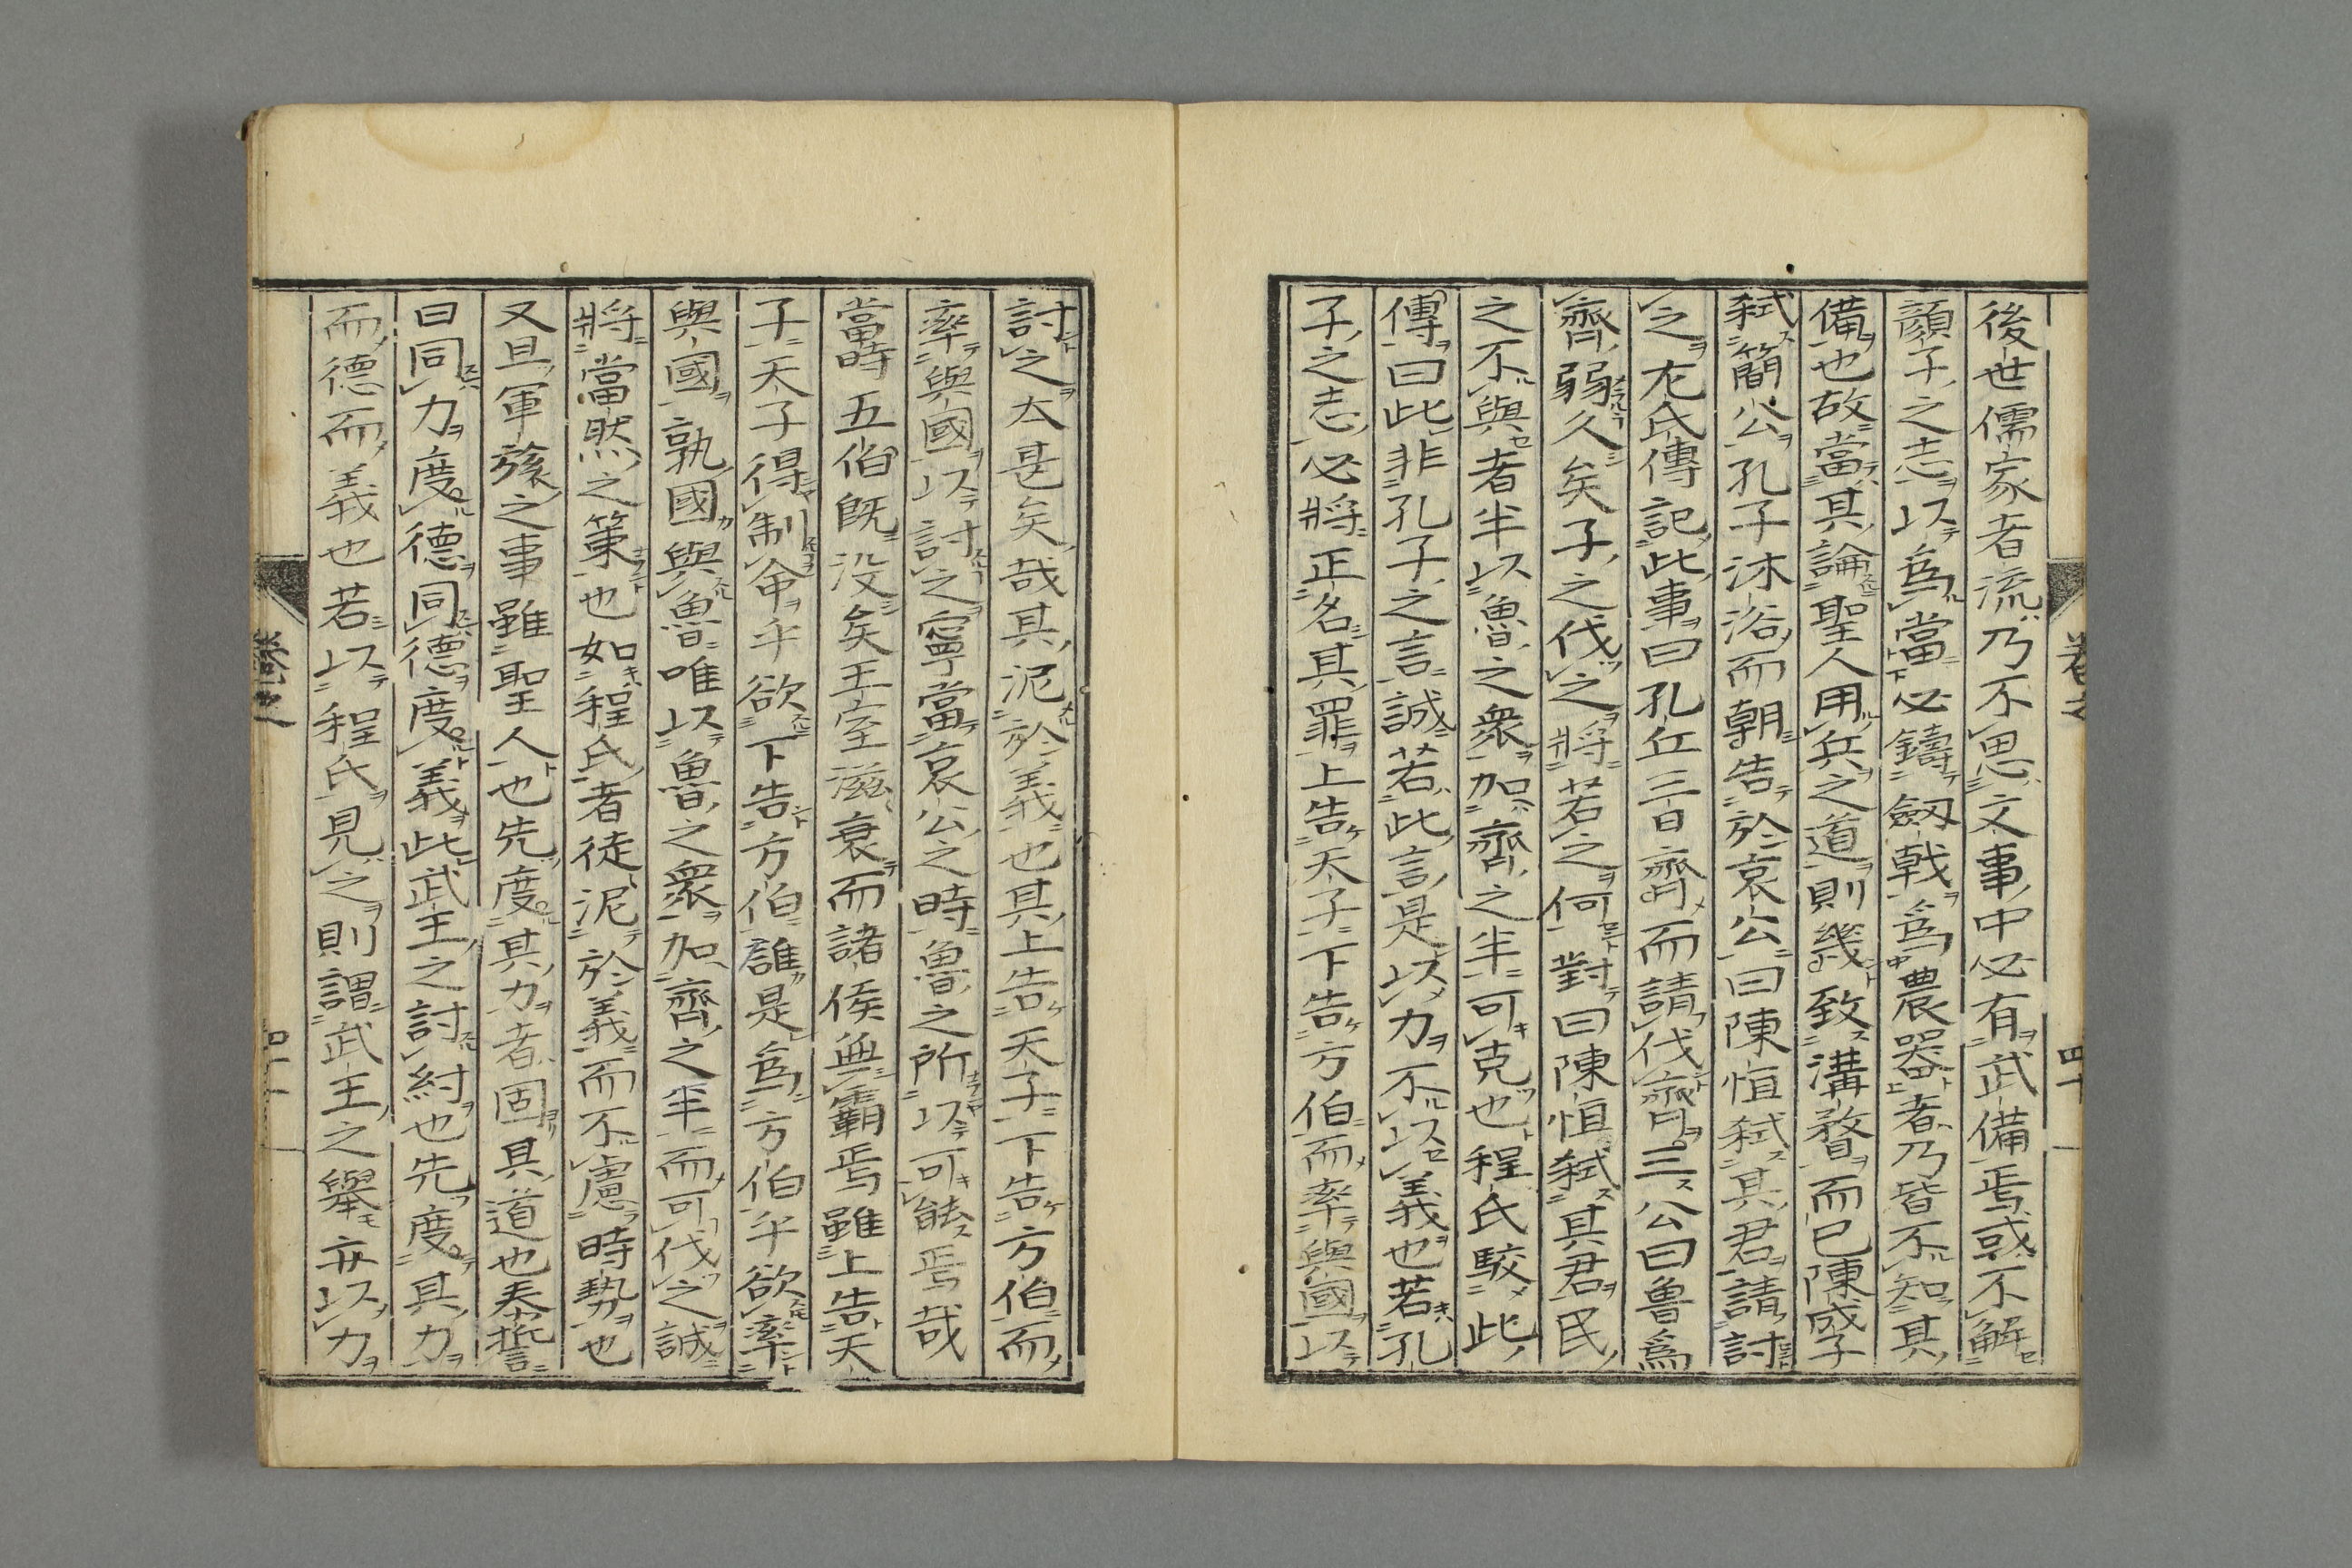 後世儒家者流乃不思文事中必有武備焉或不解
顔子之志以爲當必鑄劔戟爲農器者乃皆不知其
備也故當其論聖人用兵之道則幾致溝瞀而已陳成子
弑簡公孔子沐浴而朝告於哀公曰陳恒弑其君請討
之左氏傳記此事曰孔丘三日齊而請伐齊三公曰魯爲
齊弱久矣子之伐之將若之何對曰陳恒弑其君民
之不與者半以魯之衆加齊之半可克也程氏駁此
傳曰此非孔子之言誠若此言是以力不以義也若孔
子之志必將正名其罪上告天子下告方伯而率與國以
討之太甚矣哉其泥於義也其上告天子下告方伯而
率與國以討之寧當哀公之時魯之所以可能焉哉
當時五伯既没矣王室滋衰而諸侯無霸焉雖上告天
子天子得制命乎欲下告方伯誰是爲方伯乎欲率
與國孰國與魯唯以魯之衆加齊之半而可伐之誠
將當然之策也如程氏者徒泥於義而不慮時勢也
又且軍旅之事雖聖人也先度其力者固其道也泰誓
曰同力度德同德度義此武王之討紂也先度其力
而德而義也若以程氏見之則謂武王之舉亦以力